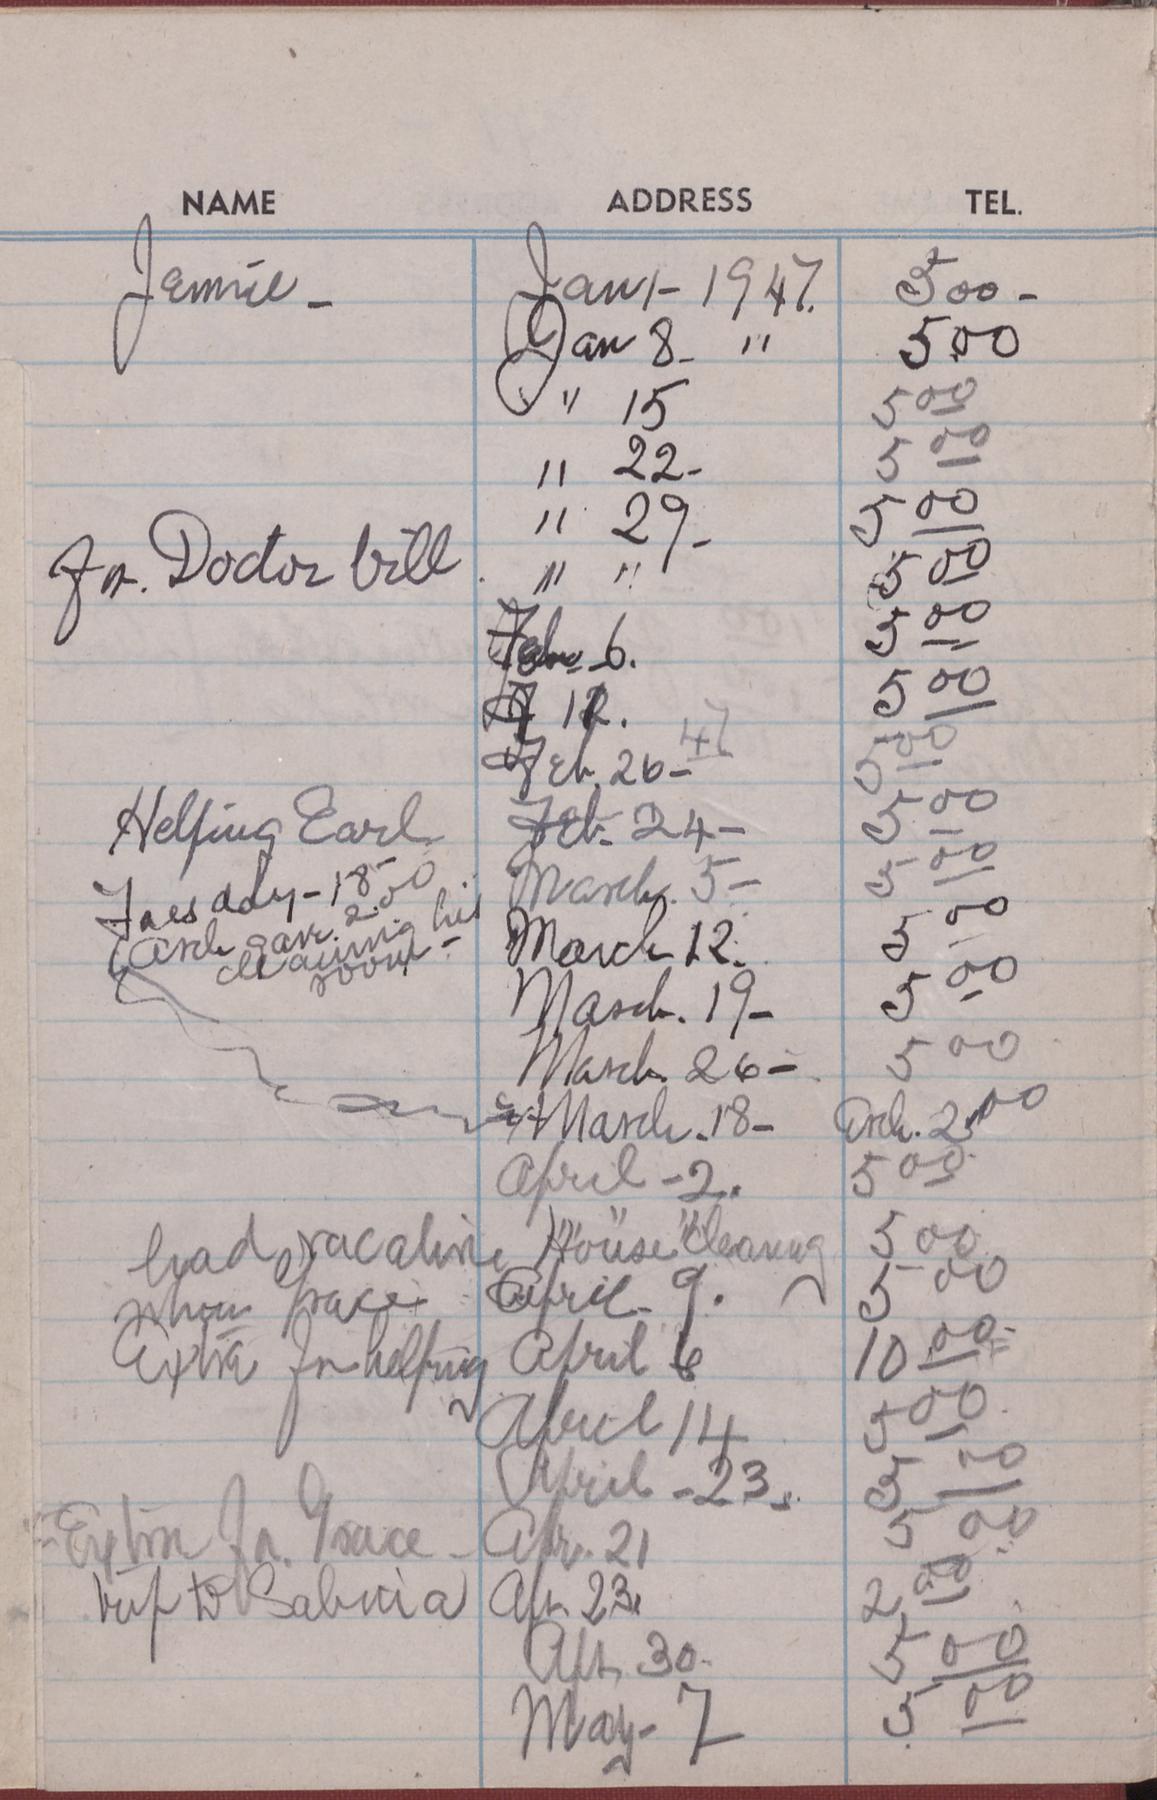 NAME ADDRESS TEL.
Jennie - Jan 1- 1947. 500-
Jan 8- " 5.00
" " 15 5 00
" 22- 5 00
" 29- 5 00
for. Doctor bill " " 5 00
Feb 6. 5 00
F 12. 5 00
Feb. 26- 47 5 00
Helping Earl Feb. 24- 5 00
Tuesday-18- March. 5- 5 00
(Arch gave. 2.00 March 12. 5 00
cleaning his
room- March. 19- 5 00
March. 26- 5 00
March. 18- Arch. 2.00
April -2. 5 00
had House Cleaning 5 00
April- 9. 5 00
Extra for helping April 6 10 00
April 14 5 00
April -23. 5 00
Extra for. Grace - Apr. 21 5 00
trip to Sabina Apr 23. 2 00
Apr. 30. 5 00
May- 7 5 00